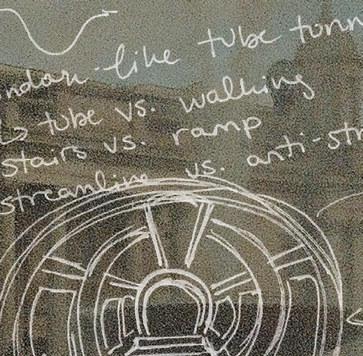 like tube
tube vs. walking
stairs vs. ramp
streamline vs. anti-